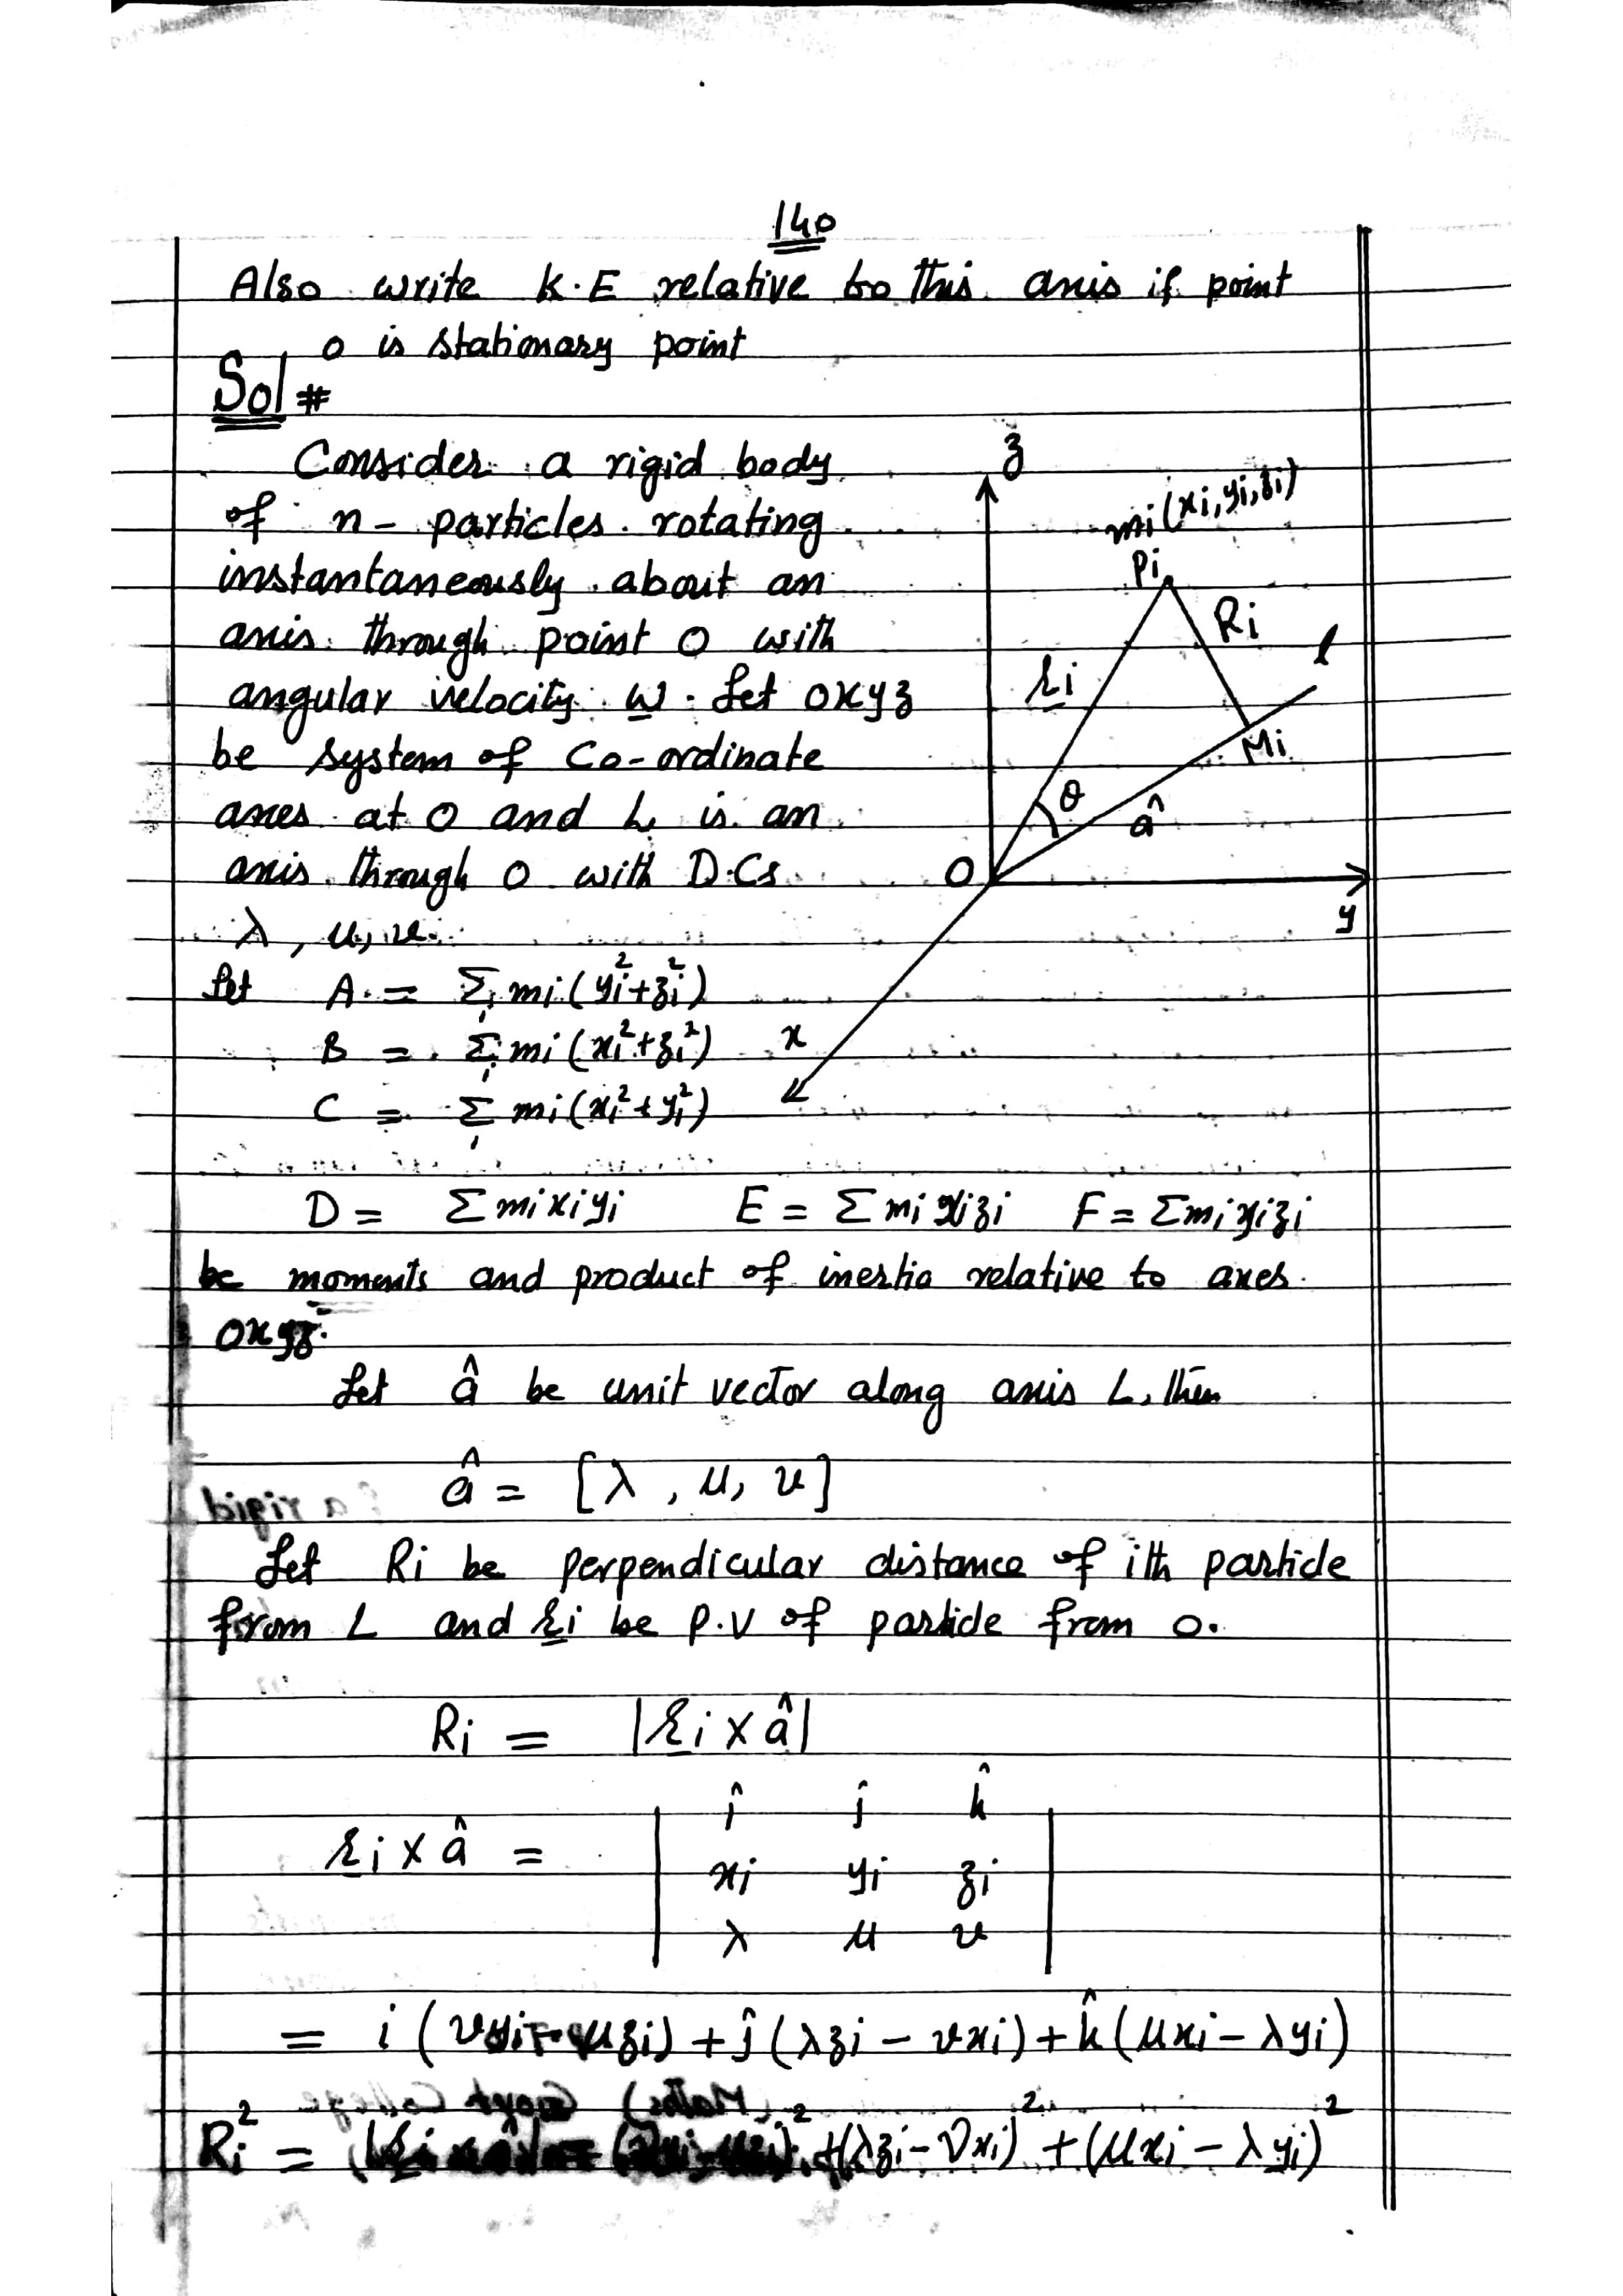 140
Also write K.E relative to this axis if point
o is stationary point
Sol #
Consider a rigid body
of n- particles rotating
instantaneously about an
axis through point O with
angular velocity ω. Let oxyz
be system of Co-ordinate
axes at O and L is an
axis through O with D.Cs
λ, μ, ν.
Let A = Σ mi(yi²+zi²)
B = Σ mi(xi²+zi²)
C = Σ mi(xi²+yi²)
z
mi(xi,yi,zi)
Pi
Ri
l
ri
Mi
θ
â
O
y
x
D = Σmixiyi E = Σmi xizi F = Σmiyizi
be moments and product of inertia relative to axes
oxyz.
Let â be unit vector along axis L, then
â = [λ, μ, ν]
Let Ri be perpendicular distance of ith particle
from L and ri be P.V of particle from o.
Ri = |ri x â|
ri x â =
î ĵ k̂
xi yi zi
λ μ ν
= i(νyi - μzi) + ĵ(λzi - νxi) + k̂(μxi - λyi)
Ri² = +(λzi - νxi)² + (μxi - λyi)²